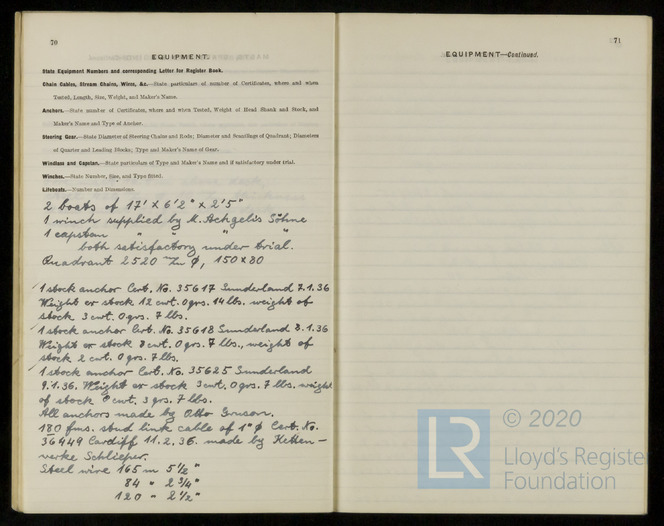 70
EQUIPMENT.
State Equipment Numbers and corresponding Letter for Register Book.
Chain Cables, Stream Chains, Wires, &c.—State particulars of number of Certificates, where and when
Tested, Length, Size, Weight, and Maker's Name.
Anchors.—State number of Certificates, where and when Tested, Weight of Head Shank and Stock, and
Maker's Name and Type of Anchor.
Steering Gear.—State Diameter of Steering Chains and Rods; Diameter and Scantlings of Quadrant; Diameters
of Quarter and Leading Blocks; Type and Maker's Name of Gear.
Windlass and Capstan.—State particulars of Type and Maker's Name and if satisfactory under trial.
Winches.—State Number, Size, and Type fitted.
Lifeboats.—Number and Dimensions.
2 boats of 17' x 6'2" x 2'5"
1 winch supplied by M. Achgelis Söhne
1 capstan " " " "
both satisfactory under trial.
Quadrant 2520 mm ø, 150 x 80
1 stock anchor Cert. No. 35617 Sunderland 7.1.36
Weight ex stock 12 cwt. 0 qrs. 14 lbs. weight of
stock 3 cwt. 0 qrs. 7 lbs.
1 stock anchor Cert. No. 35618 Sunderland 8.1.36
Weight ex stock 8 cwt. 0 qrs. 7 lbs., weight of
stock 2 cwt. 0 qrs. 7 lbs.
1 stock anchor Cert. No. 35625 Sunderland
9.1.36. Weight ex stock 3 cwt. 0 qrs. 7 lbs. weight
of stock 0 cwt. 3 qrs. 7 lbs.
All anchors made by Otto Gruson.
180 fms. stud link cable of 1" ø Cert. No.
36449 Cardiff 11.2.36. made by Ketten-
werke Schlieper.
Steel wire 165 m 5 1/2"
84 " 2 3/4"
120 " 2 1/2"
71
EQUIPMENT—Continued.
© 2020
LR
Lloyd's Register
Foundation